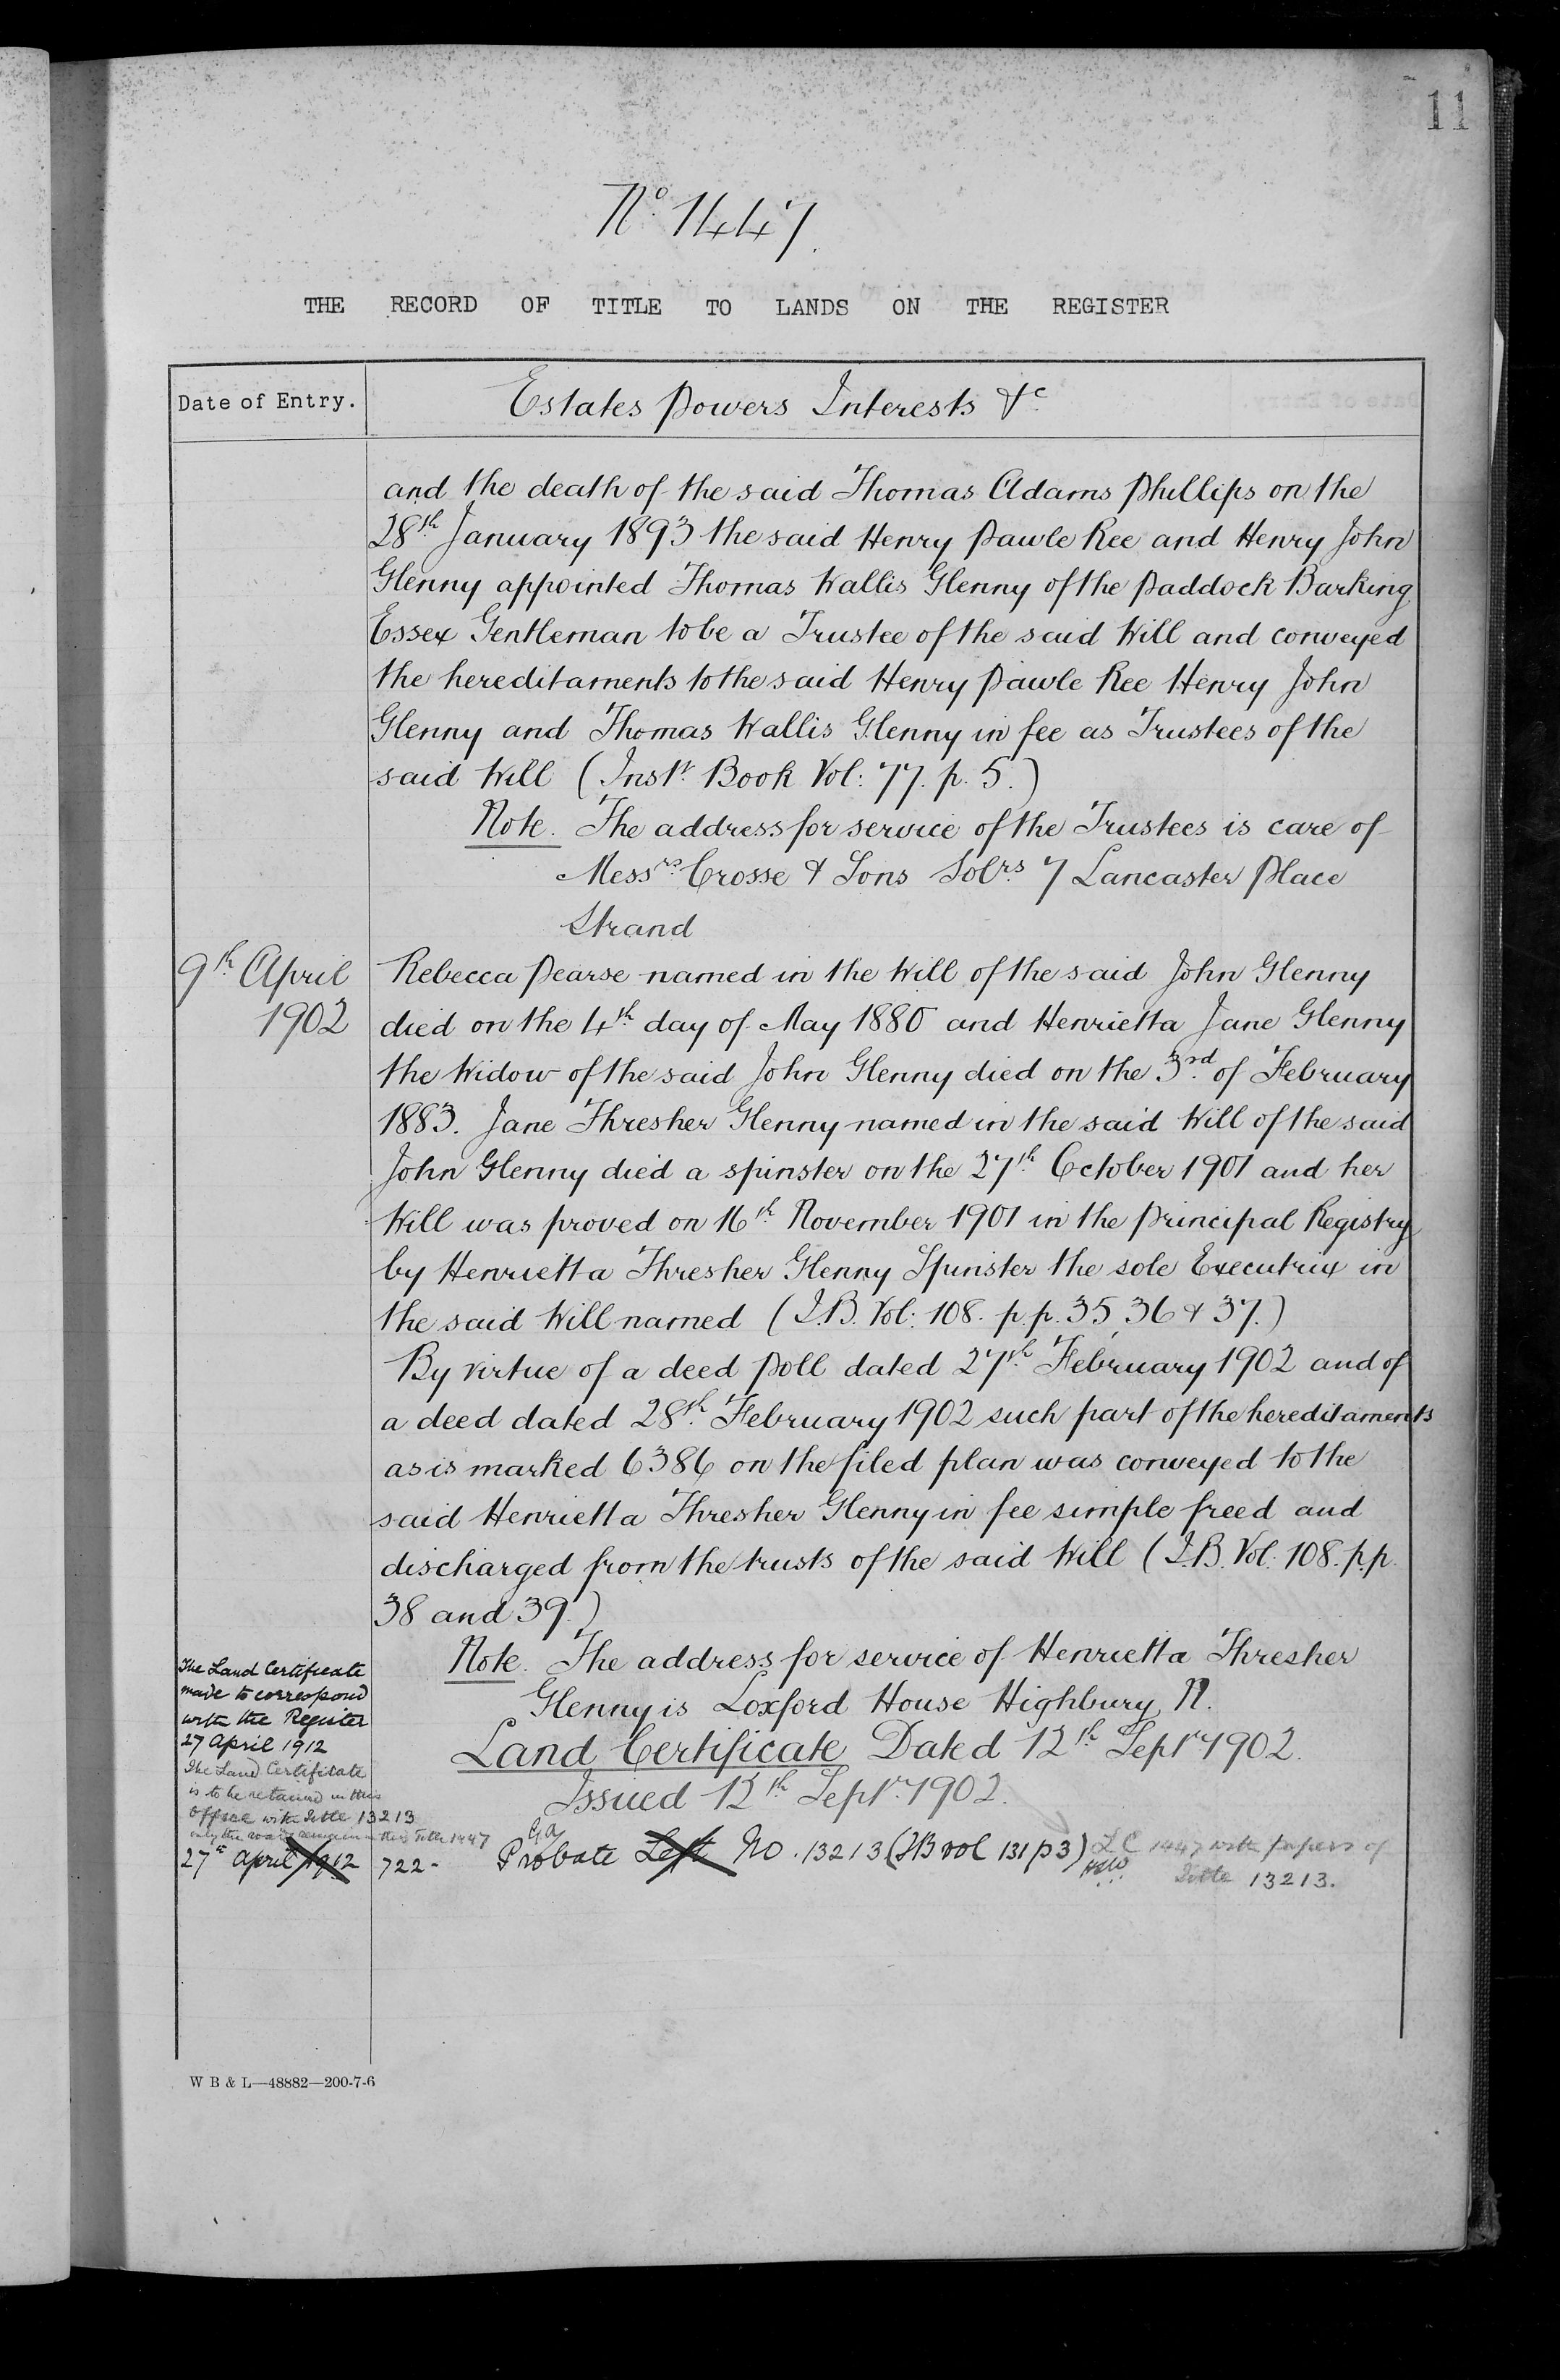 11
No. 1447.
THE RECORD OF TITLE TO LANDS ON THE REGISTER
Date of Entry.
Estates Powers Interests &c.
and the death of the said Thomas Adams Phillips on the
28th January 1893 the said Henry Pawle Ree and Henry John
Glenny appointed Thomas Wallis Glenny of the Paddock Barking
Essex Gentleman to be a Trustee of the said Will and conveyed
the hereditaments to the said Henry Pawle Ree Henry John
Glenny and Thomas Wallis Glenny in fee as Trustees of the
said Will (Inst. Book Vol: 77. p. 5.)
Note. The address for service of the Trustees is care of
Messrs. Crosse & Sons Solrs. 7 Lancaster Place
Strand
9th April
1902
Rebecca Pearse named in the Will of the said John Glenny
died on the 4th day of May 1880 and Henrietta Jane Glenny
the Widow of the said John Glenny died on the 3rd of February
1883. Jane Thresher Glenny named in the said Will of the said
John Glenny died a spinster on the 27th October 1901 and her
Will was proved on 16th November 1901 in the Principal Registry
by Henrietta Thresher Glenny Spinster the sole Executrix in
the said Will named (I.B. Vol: 108. p.p. 35, 36 & 37.)
By virtue of a deed Poll dated 27th February 1902 and of
a deed dated 28th February 1902 such part of the hereditaments
as is marked 6386 on the filed plan was conveyed to the
said Henrietta Thresher Glenny in fee simple freed and
discharged from the trusts of the said Will (I.B. Vol. 108. p.p.
38 and 39.)
Note. The address for service of Henrietta Thresher
Glenny is Loxford House Highbury N.
Land Certificate Dated 12th Septr. 1902.
Issued 12th Septr. 1902.
The Land Certificate
made to correspond
with the Register
27 April 1912
The Land Certificate
is to be retained in this
Office with Title 13213
only the roads remain in this Title 1447
27th April 1912
722-
Probate Left No. 13213 (IB vol 131 p3) LC 1447 with papers of
Title 13213.
W B & L—48882—200-7-6